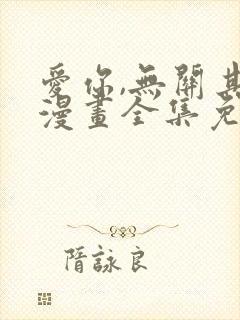 愛你,無關其
漫畫全集免
隋詠良